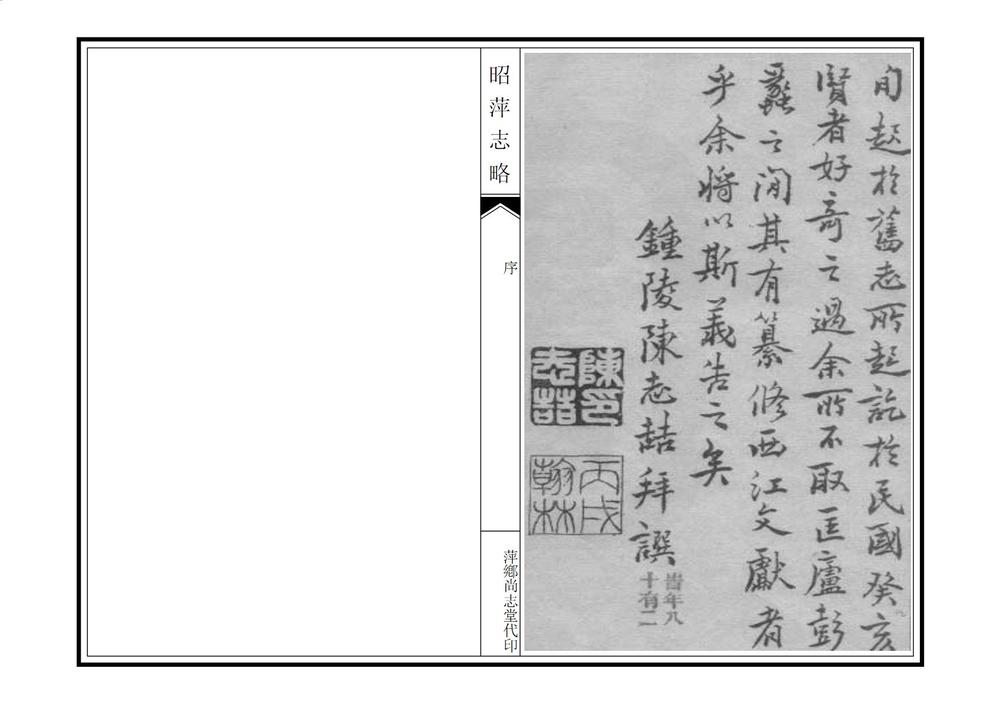 旬起於舊志所起訖於民國癸亥
賢者好奇之過余所不取匡廬彭
蠡之間其有纂修西江文獻者
乎余將以斯義告之矣
鍾陵陳志喆拜譔
時年八
十有二
陳印
志喆
丙戌
翰林
昭萍志略
序
萍鄉尚志堂代印